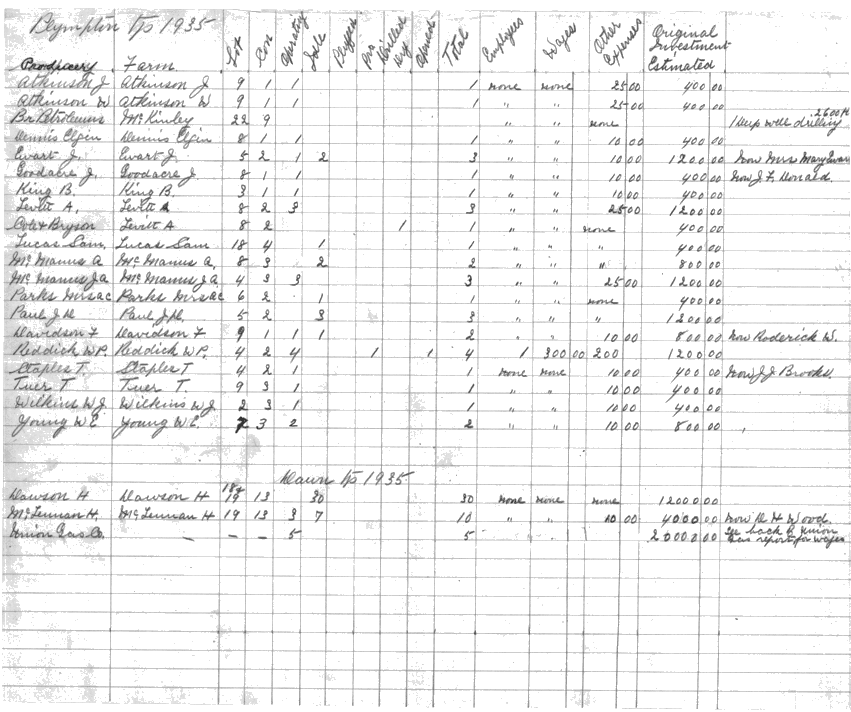 Plympton Tp 1935
Producers Farm Lot Con Operatg Idle Plugged Pro Drilled Dry Opened Total Employees Wages Other Expenses Original Investment Estimated
Atkinson J Atkinson J 9 1 1 1 none none 25 00 400 00
Atkinson W Atkinson W 9 1 1 1 " " 25 00 400 00
Br. Petroleums McKinley 22 9 " " none 1 Deep well drilling 2600 ft
Dennis Elgin Dennis Elgin 8 1 1 1 " " 10 00 400 00
Ewart J. Ewart J 5 2 1 2 3 " " 10 00 1200 00 Now Mrs Mary Ewart
Goodacre J. Goodacre J 8 1 1 1 " " 10 00 400 00 Now J. F. Donald.
King B. King B 3 1 1 1 " " 10 00 400 00
Levitt A. Levitt A 8 2 3 3 " " 25 00 1200 00
Cole & Bryson Levitt A 8 2 1 1 " " none 400 00
Lucas Sam. Lucas Sam 18 4 1 1 " " " 400 00
McManus A McManus A. 8 3 2 2 " " " 800 00
McManus J A McManus J A. 4 3 3 3 " " 25 00 1200 00
Parks Mrs A C Parks Mrs A C 6 2 1 1 " " none 400 00
Paul J H Paul J H 5 2 3 3 " " " 1200 00
Davidson F Davidson F 9 1 1 1 2 " " 10 00 800 00 Now Roderick W.
Reddick W P. Reddick W P. 4 2 4 1 1 4 1 300 00 200 1200 00
Staples T. Staples T 4 2 1 1 none none 10 00 400 00 Now J J Brooks
Tuer T. Tuer T. 9 3 1 1 " " 10 00 400 00
Wilkins W J. Wilkins W J 2 3 1 1 " " 10 00 400 00
Young W E. Young W E. 7 3 2 2 " " 10 00 800 00
Dawn Tp 1935
Dawson H Dawson H 18 & 19 13 30 30 none none none 12000 00
McLennan H. McLennan H 19 13 3 7 10 " " 10 00 4000 00 Now D H Wood.
Union Gas Co. – – – 5 5 2000 00 See back of Union
Gas report for wages